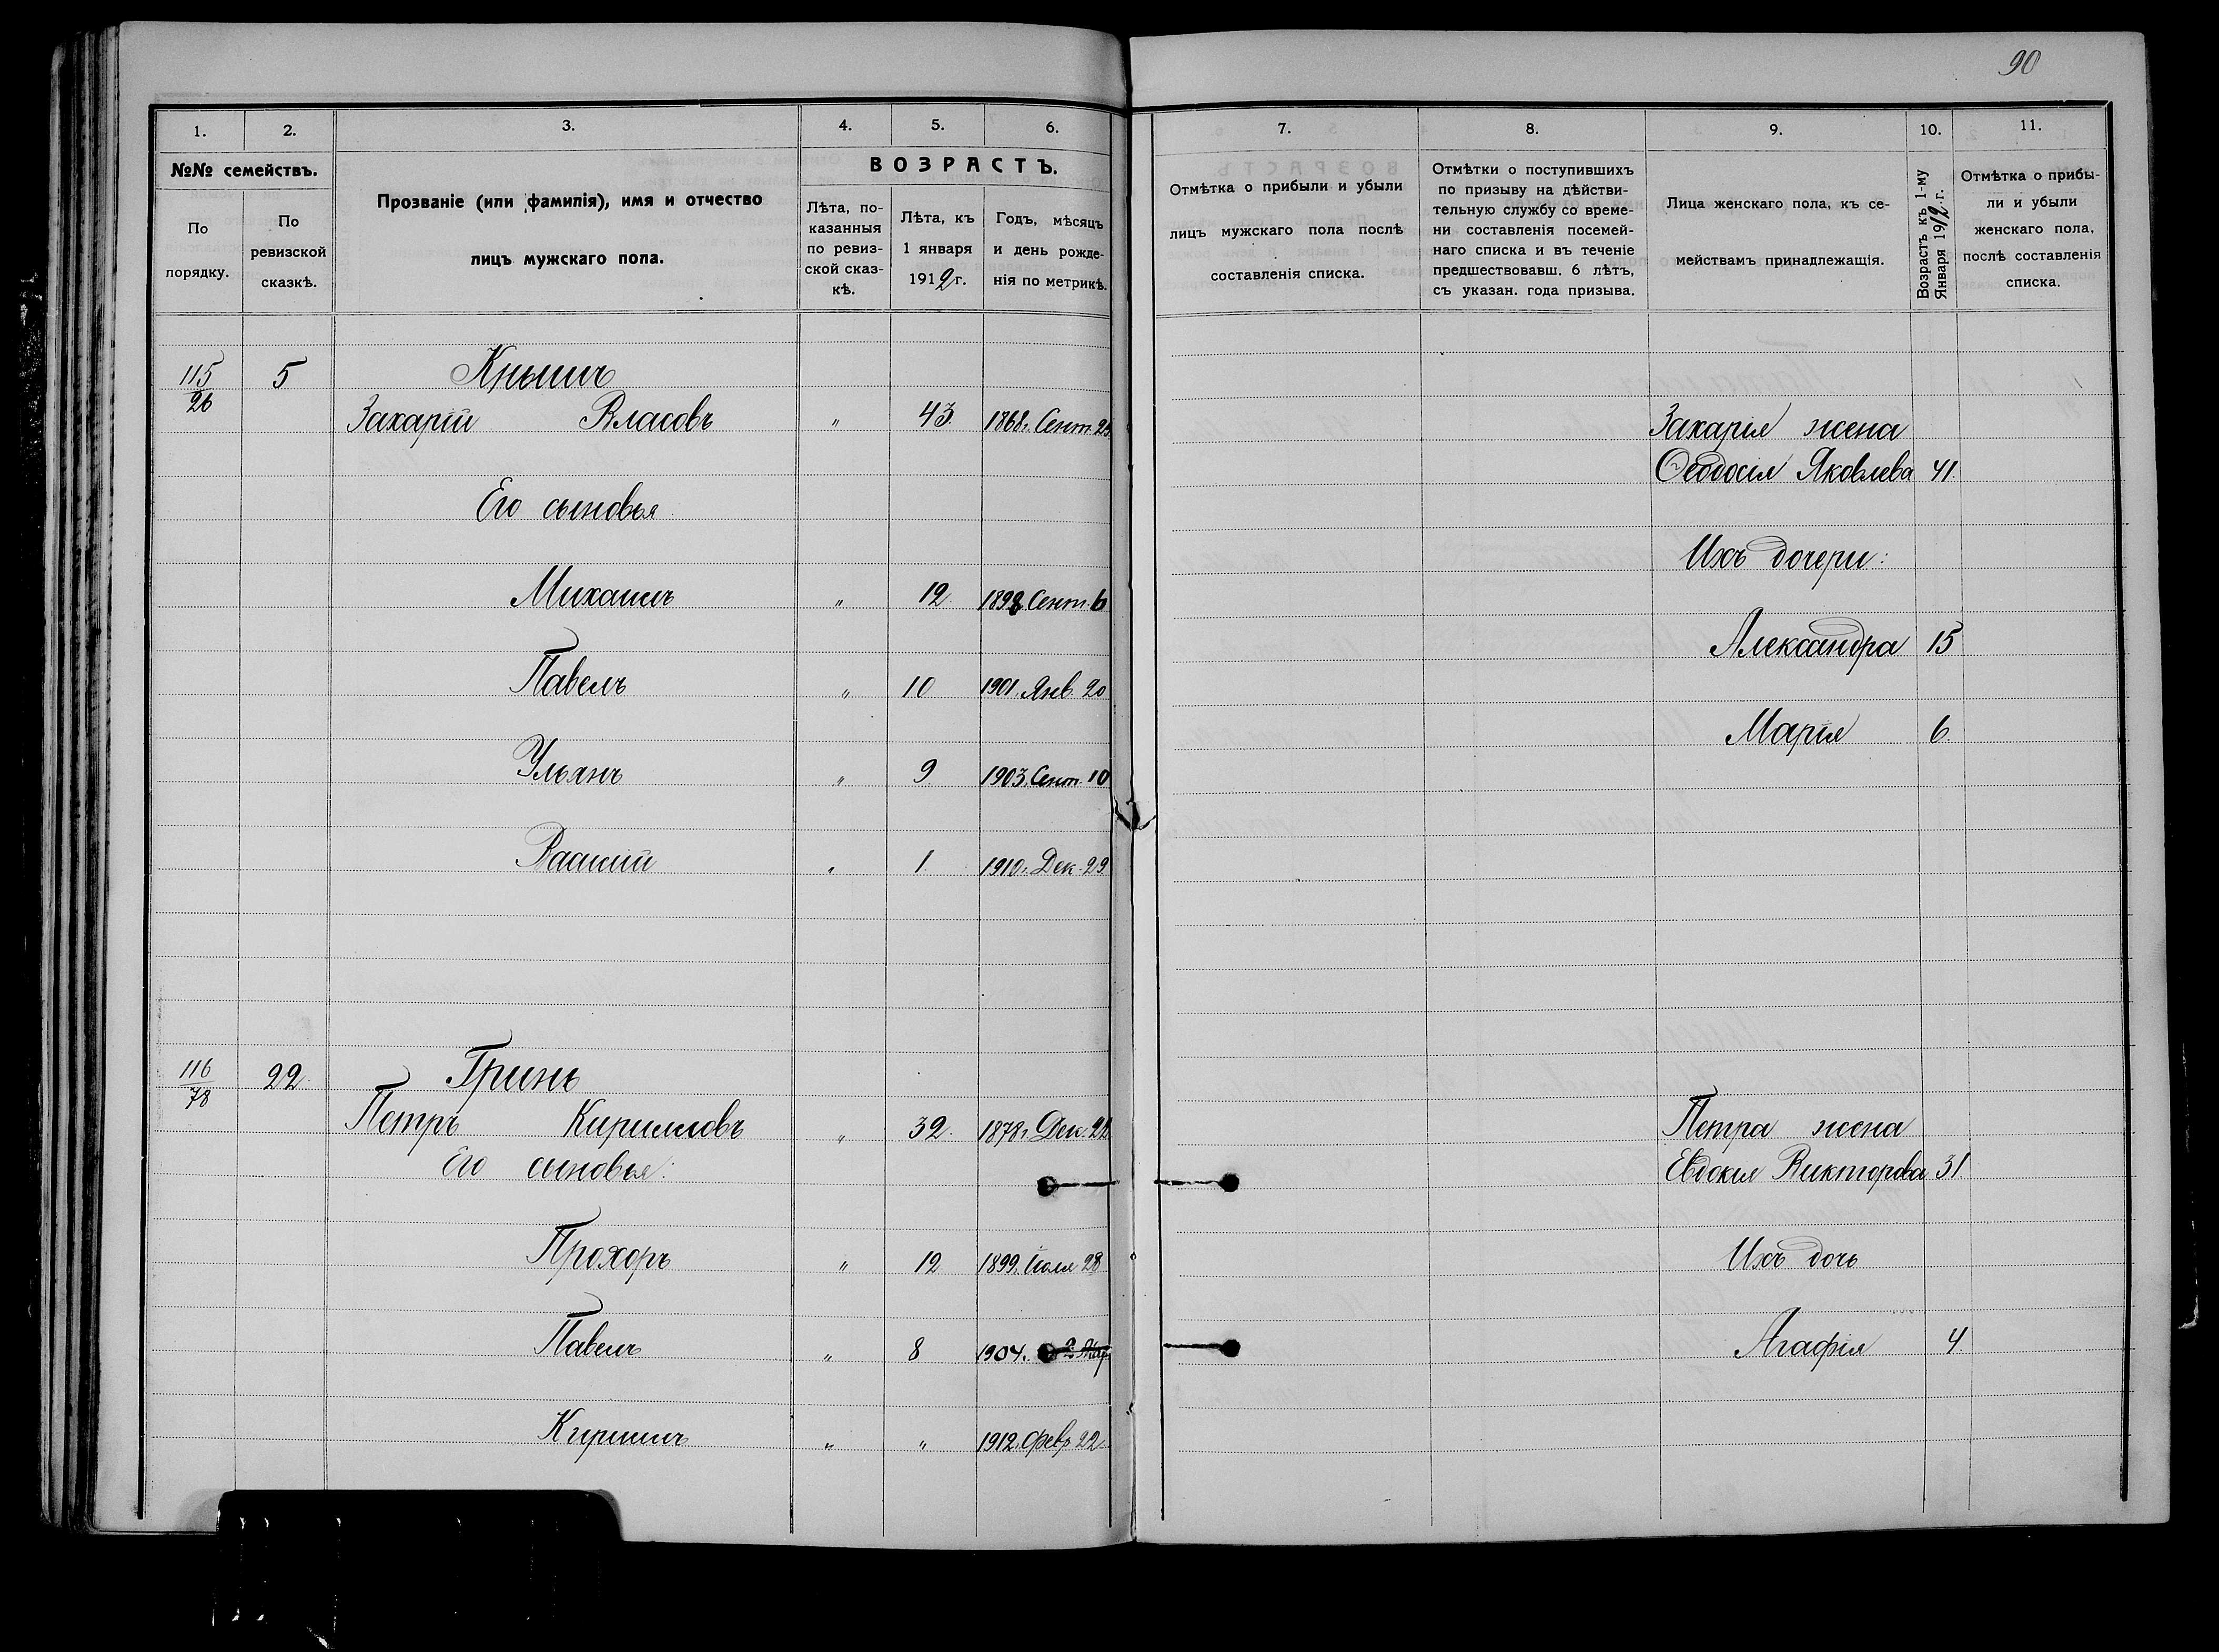 90
1. 2. 3. 4. 5. 6.
№№ семействъ.
По порядку.
По ревизской сказкѣ.
Прозваніе (или фамилія), имя и отчество
лицъ мужскаго пола.
ВОЗРАСТЪ.
Лѣта, по-
казанныя
по ревиз-
ской сказ-
кѣ.
Лѣта, къ
1 января
1912 г.
Годъ, мѣсяцъ
и день рожде-
нія по метрикѣ.
115/26 5 Кнышъ
Захарій Власовъ " 43. 1868 г. Сент.
Его сыновья
Михаилъ " 12. Сент. 6
Павелъ " 10 1901. Янв. 20
Ульянъ " 9 1903. Сент. 10
Василій " 1. 1910 г. Дек. 29
116/78 22. Гринь
Петръ Кирилловъ " 32. 1878 г. Дек.
Его сыновья:
Прохоръ " 12 1899. Іюля 28
Павелъ " 8 1904.
Кириллъ " " 1912. Февр 22.
7. 8. 9. 10. 11.
Отмѣтка о прибыли и убыли
лицъ мужскаго пола послѣ
составленія списка.
Отмѣтки о поступившихъ
по призыву на дѣйстви-
тельную службу со време-
ни составленія посемей-
наго списка и въ теченіе
предшествовавш. 6 лѣтъ,
съ указан. года призыва.
Лица женскаго пола, къ се-
мействамъ принадлежащія.
Возрастъ къ 1-му
Января 1912 г.
Отмѣтка о прибы-
ли и убыли
женскаго пола,
послѣ составленія
списка.
Захарія жена
Ѳеодосія Яковлева 41.
Ихъ дочери:
Александра 15
Марія 6.
Петра жена
Евдокія Викторова 31.
Ихъ дочь
Агафія 4.